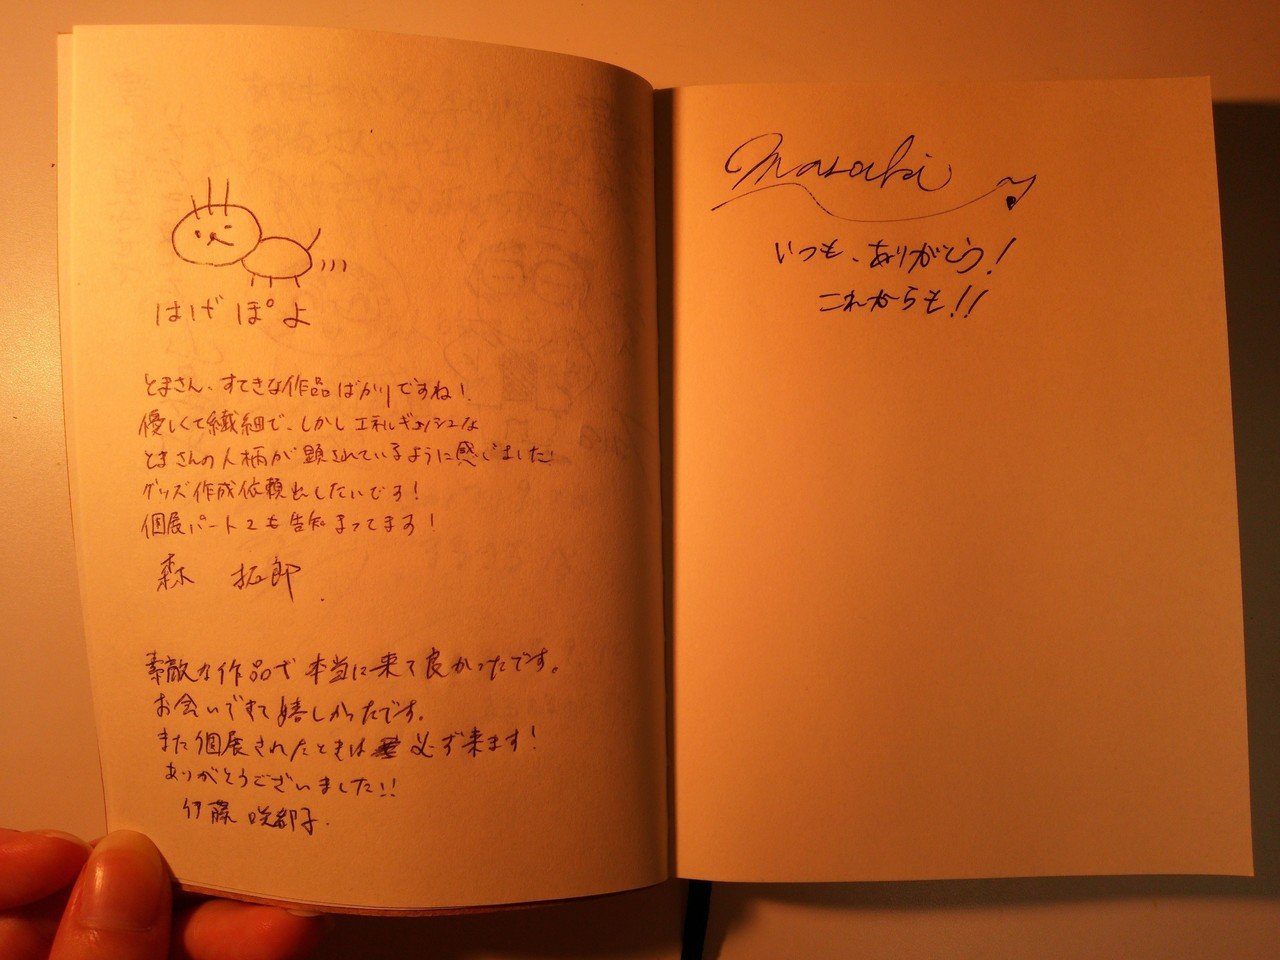 はげぽよ
とまさん、すてきな作品ばかりですね！
優しくて繊細で、しかしエネルギッシュな
とまさんの人柄が顕されているように感じました！
グッズ作成依頼もしたいです！
個展パート2も告知まってます！
森 拓郎
素敵な作品で本当に来て良かったです。
お会いできて嬉しかったです。
また個展されたときは必ず来ます！
ありがとうございました!!
伊藤 咲都子
Masaki
いつも、ありがとう！
これからも!!